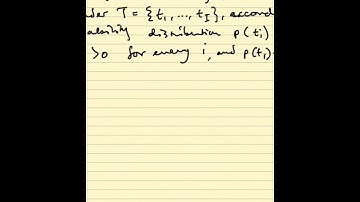 der T = {t₁, ..., t_I}, accord
ability distribution p(tᵢ)
>0 for every i, and p(t₁)